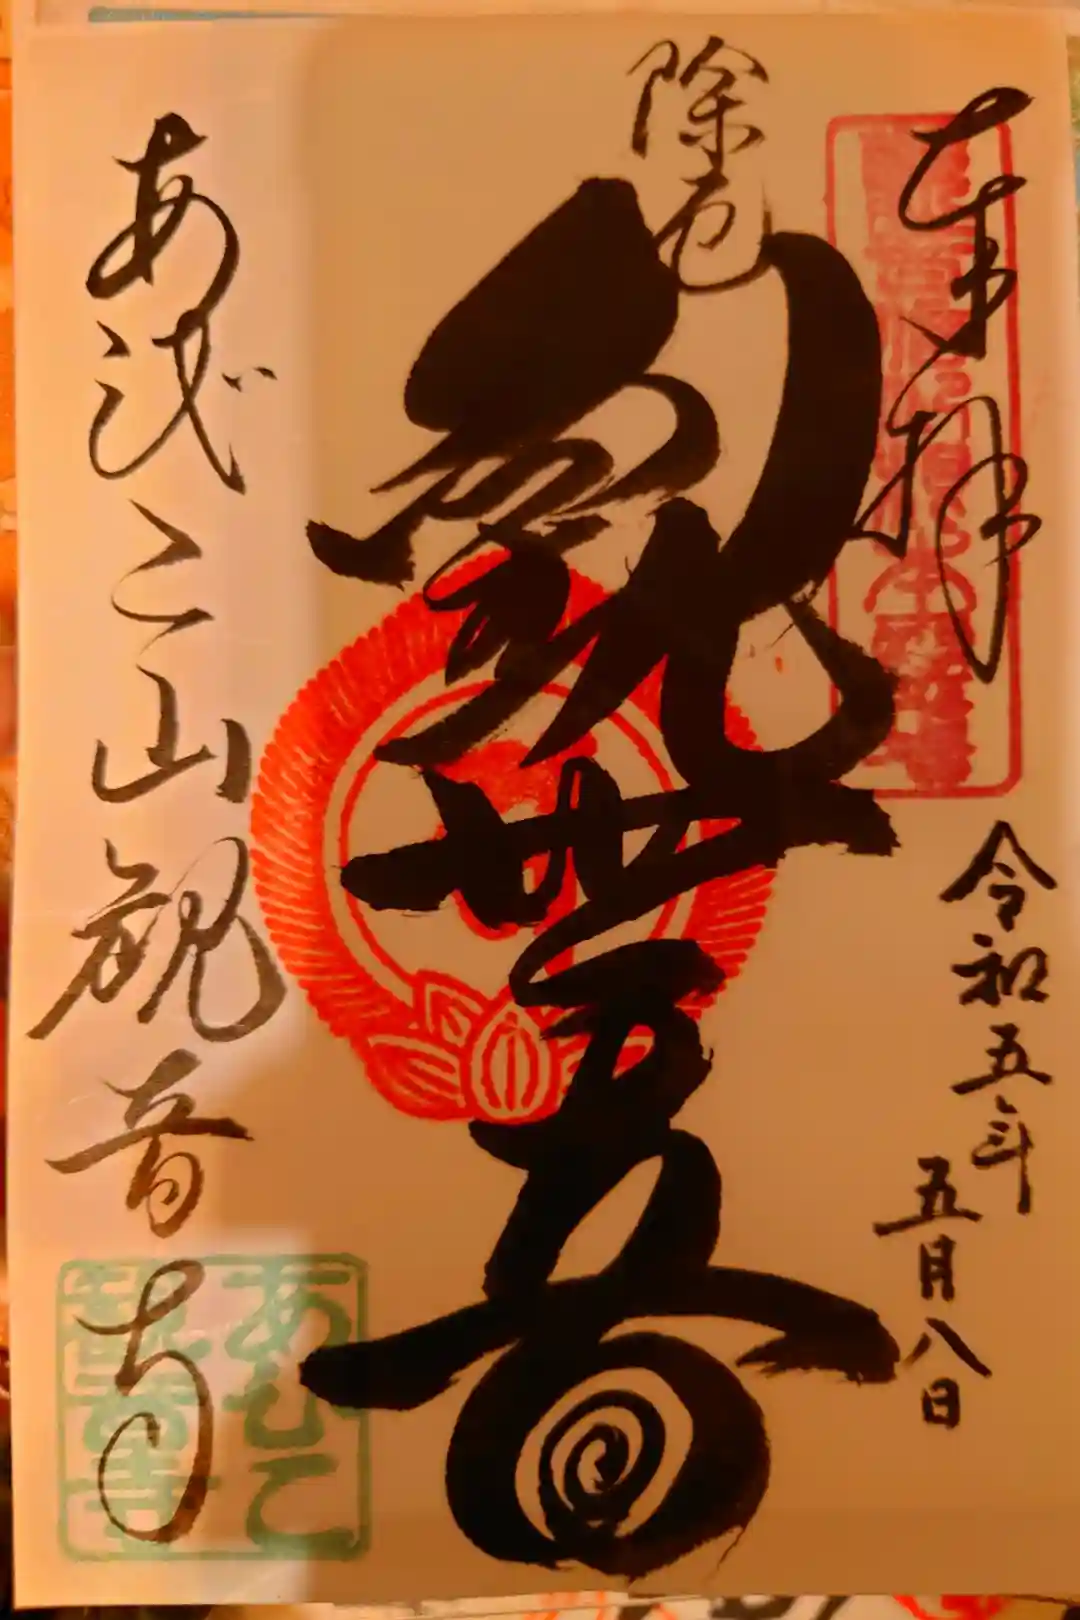 奉拝
令和五年
五月八日
除厄
觀世音
あびこ山観音寺
あびこ
観音寺